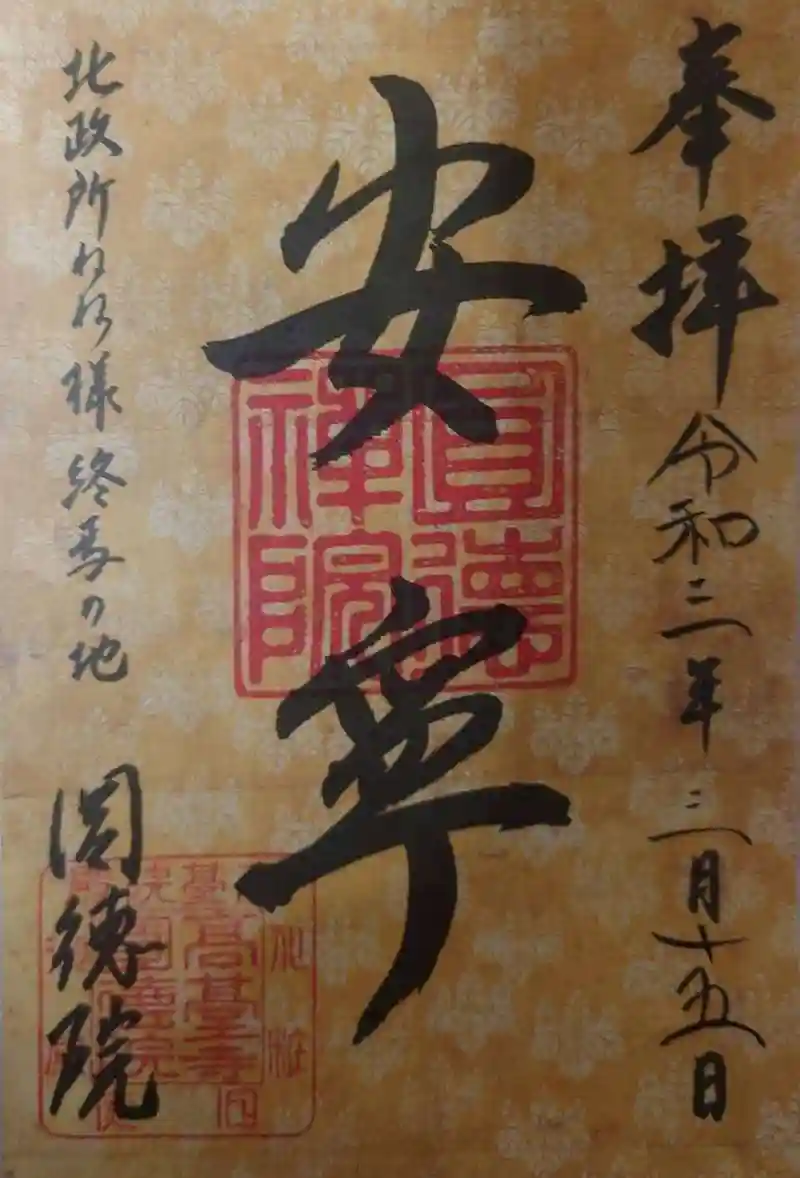 奉拝 令和三年 三月十五日
安寧
圓德禪院
北政所ねね様 終焉の地
圓徳院
高臺寺